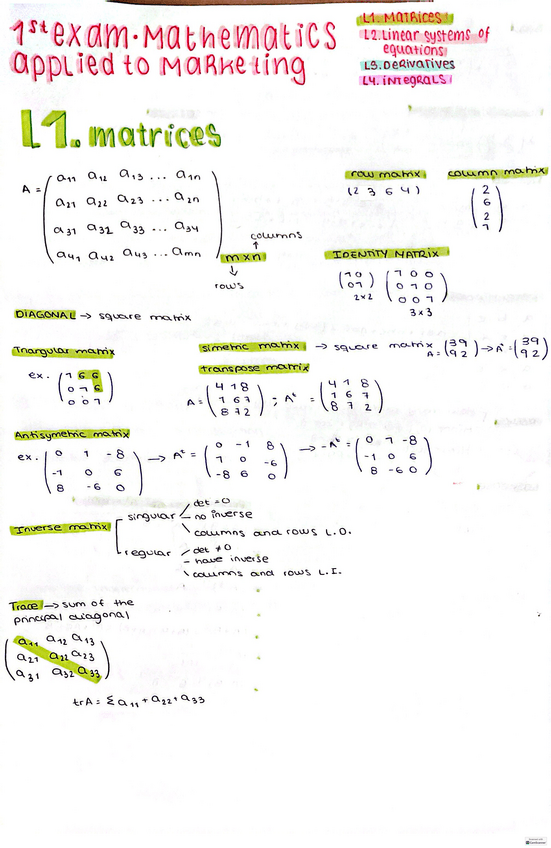 1st exam · Mathematics
applied to Marketing
L1. MATRICES
L2. Linear systems of
equations
L3. DERIVATIVES
L4. INTEGRALS
L1. matrices
A = ( a11 a12 a13 ... a1n
a21 a22 a23 ... a2n
a31 a32 a33 ... a34
a41 a42 a43 ... amn )
columns
↑
m×n
↓
rows
row matrix
(2 3 6 4)
column matrix
( 2
6
2
1 )
IDENTITY MATRIX
( 1 0
0 1 )
2×2
( 1 0 0
0 1 0
0 0 1 )
3×3
DIAGONAL → square matrix
Triangular matrix
ex. ( 1 6 6
0 1 6
0 0 1 )
simetric matrix → square matrix
A = ( 3 9
9 2 ) → At = ( 3 9
9 2 )
transpose matrix
A = ( 4 1 8
1 6 7
8 7 2 ) ; At = ( 4 1 8
1 6 7
8 7 2 )
Antisymetric matrix
ex. ( 0 1 -8
-1 0 6
8 -6 0 ) → At = ( 0 -1 8
1 0 -6
-8 6 0 ) → -At = ( 0 1 -8
-1 0 6
8 -6 0 )
Inverse matrix
singular
det = 0
no inverse
columns and rows L.D.
regular
det ≠ 0
have inverse
columns and rows L.I.
Trace → sum of the
principal diagonal
( a11 a12 a13
a21 a22 a23
a31 a32 a33 )
trA = Σ a11 + a22 + a33